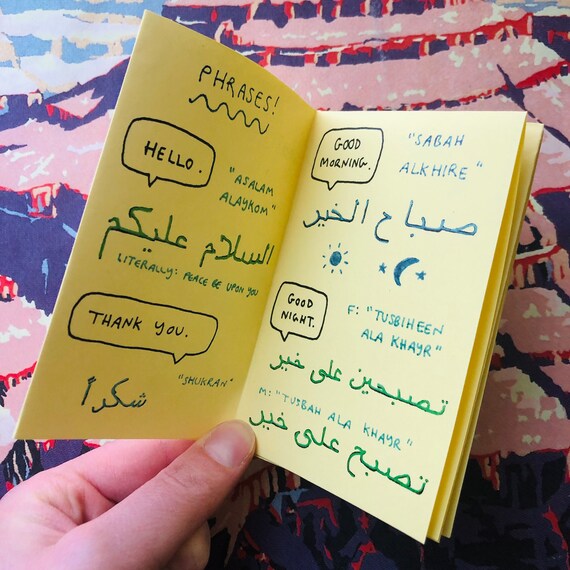 PHRASES!
HELLO.
"ASALAM
ALAYKOM"
السلام عليكم
LITERALLY: PEACE BE UPON YOU
THANK YOU.
"SHUKRAN"
شكراً
GOOD
MORNING.
"SABAH
ALKHIRE"
صباح الخير
GOOD
NIGHT.
F: "TUSBIHEEN
ALA KHAYR"
تصبحين على خير
M: "TUSBAH ALA KHAYR"
تصبح على خير